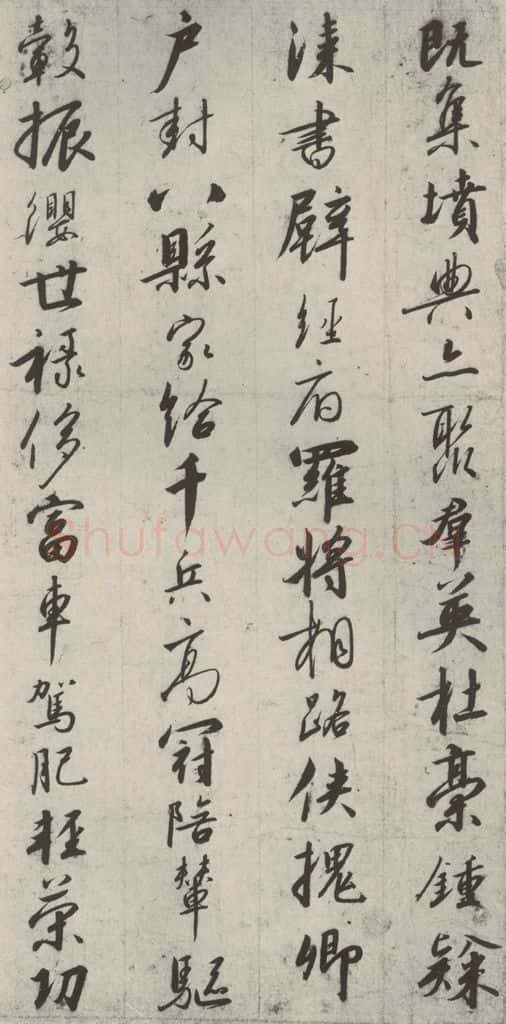 既集墳典亦聚群英杜稾鍾隸
漆書壁經府羅將相路俠槐卿
户封八縣家給千兵高冠陪輦驅
轂振纓世祿侈富車駕肥輕策功
shufawang.cn